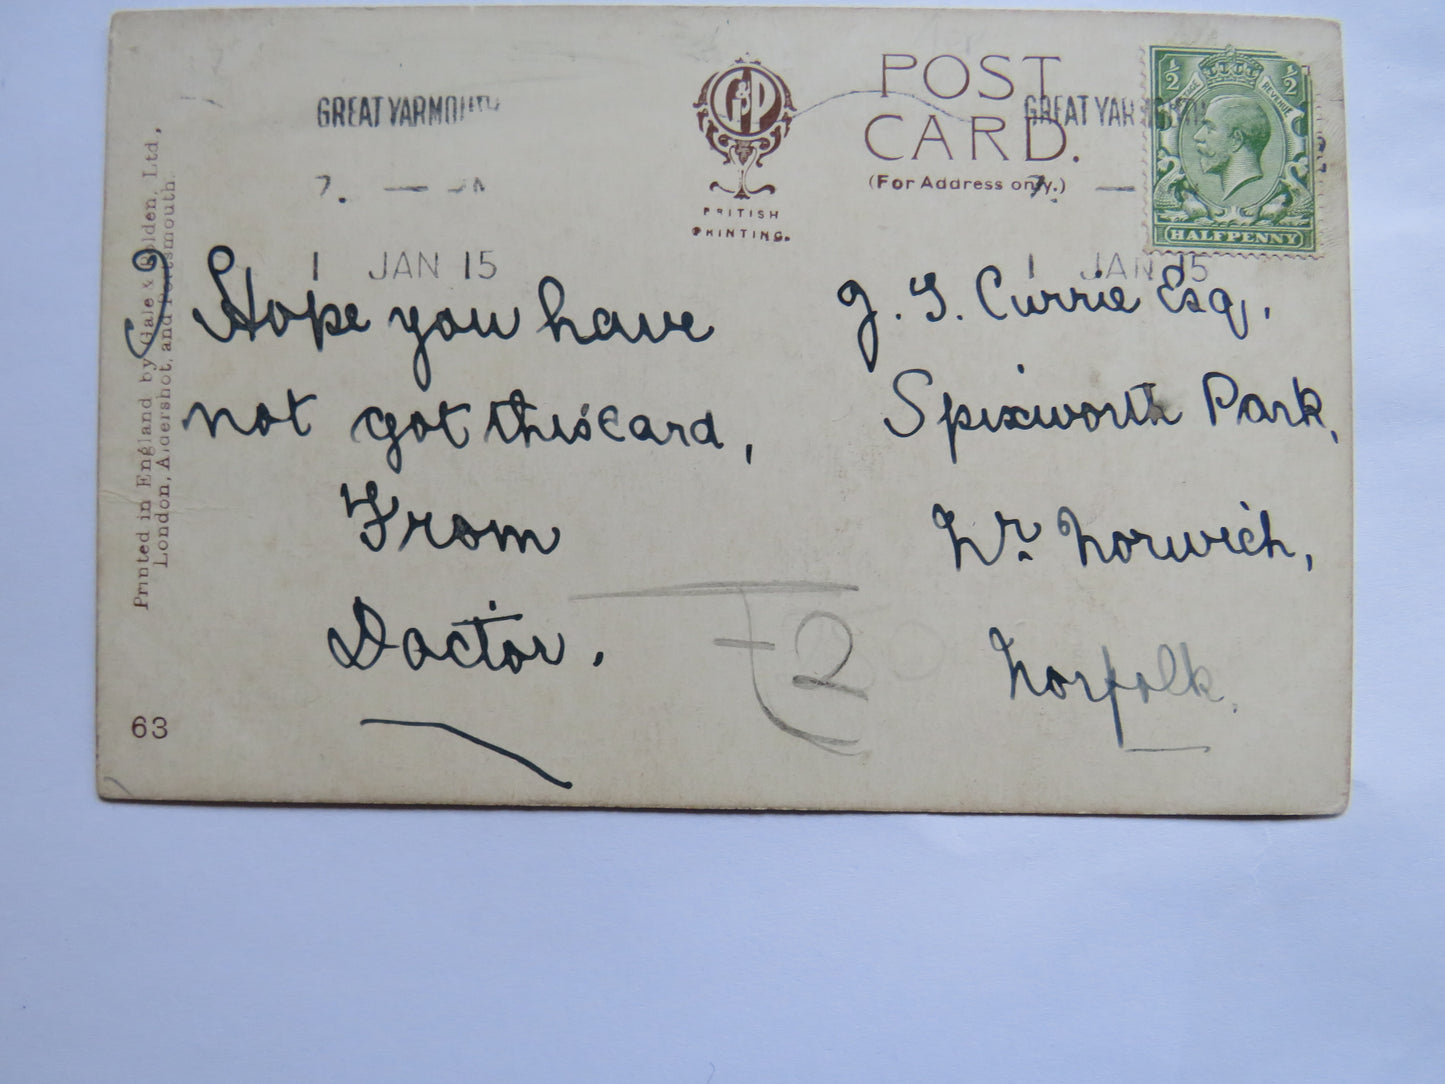 GREAT YARMOUTH
7.
1 JAN 15
G&P
BRITISH
PRINTING.
POST
CARD.
(For Address only.)
GREAT YARMOUTH
7.
1 JAN 15
½ ½
REVENUE
HALFPENNY
Printed in England by Gale & Polden, Ltd.,
London, Aldershot, and Portsmouth.
I Hope you have
not got this card,
From
Doctor.
J. G. Currie Esq,
Spixworth Park,
Nr. Norwich,
Norfolk.
2
63